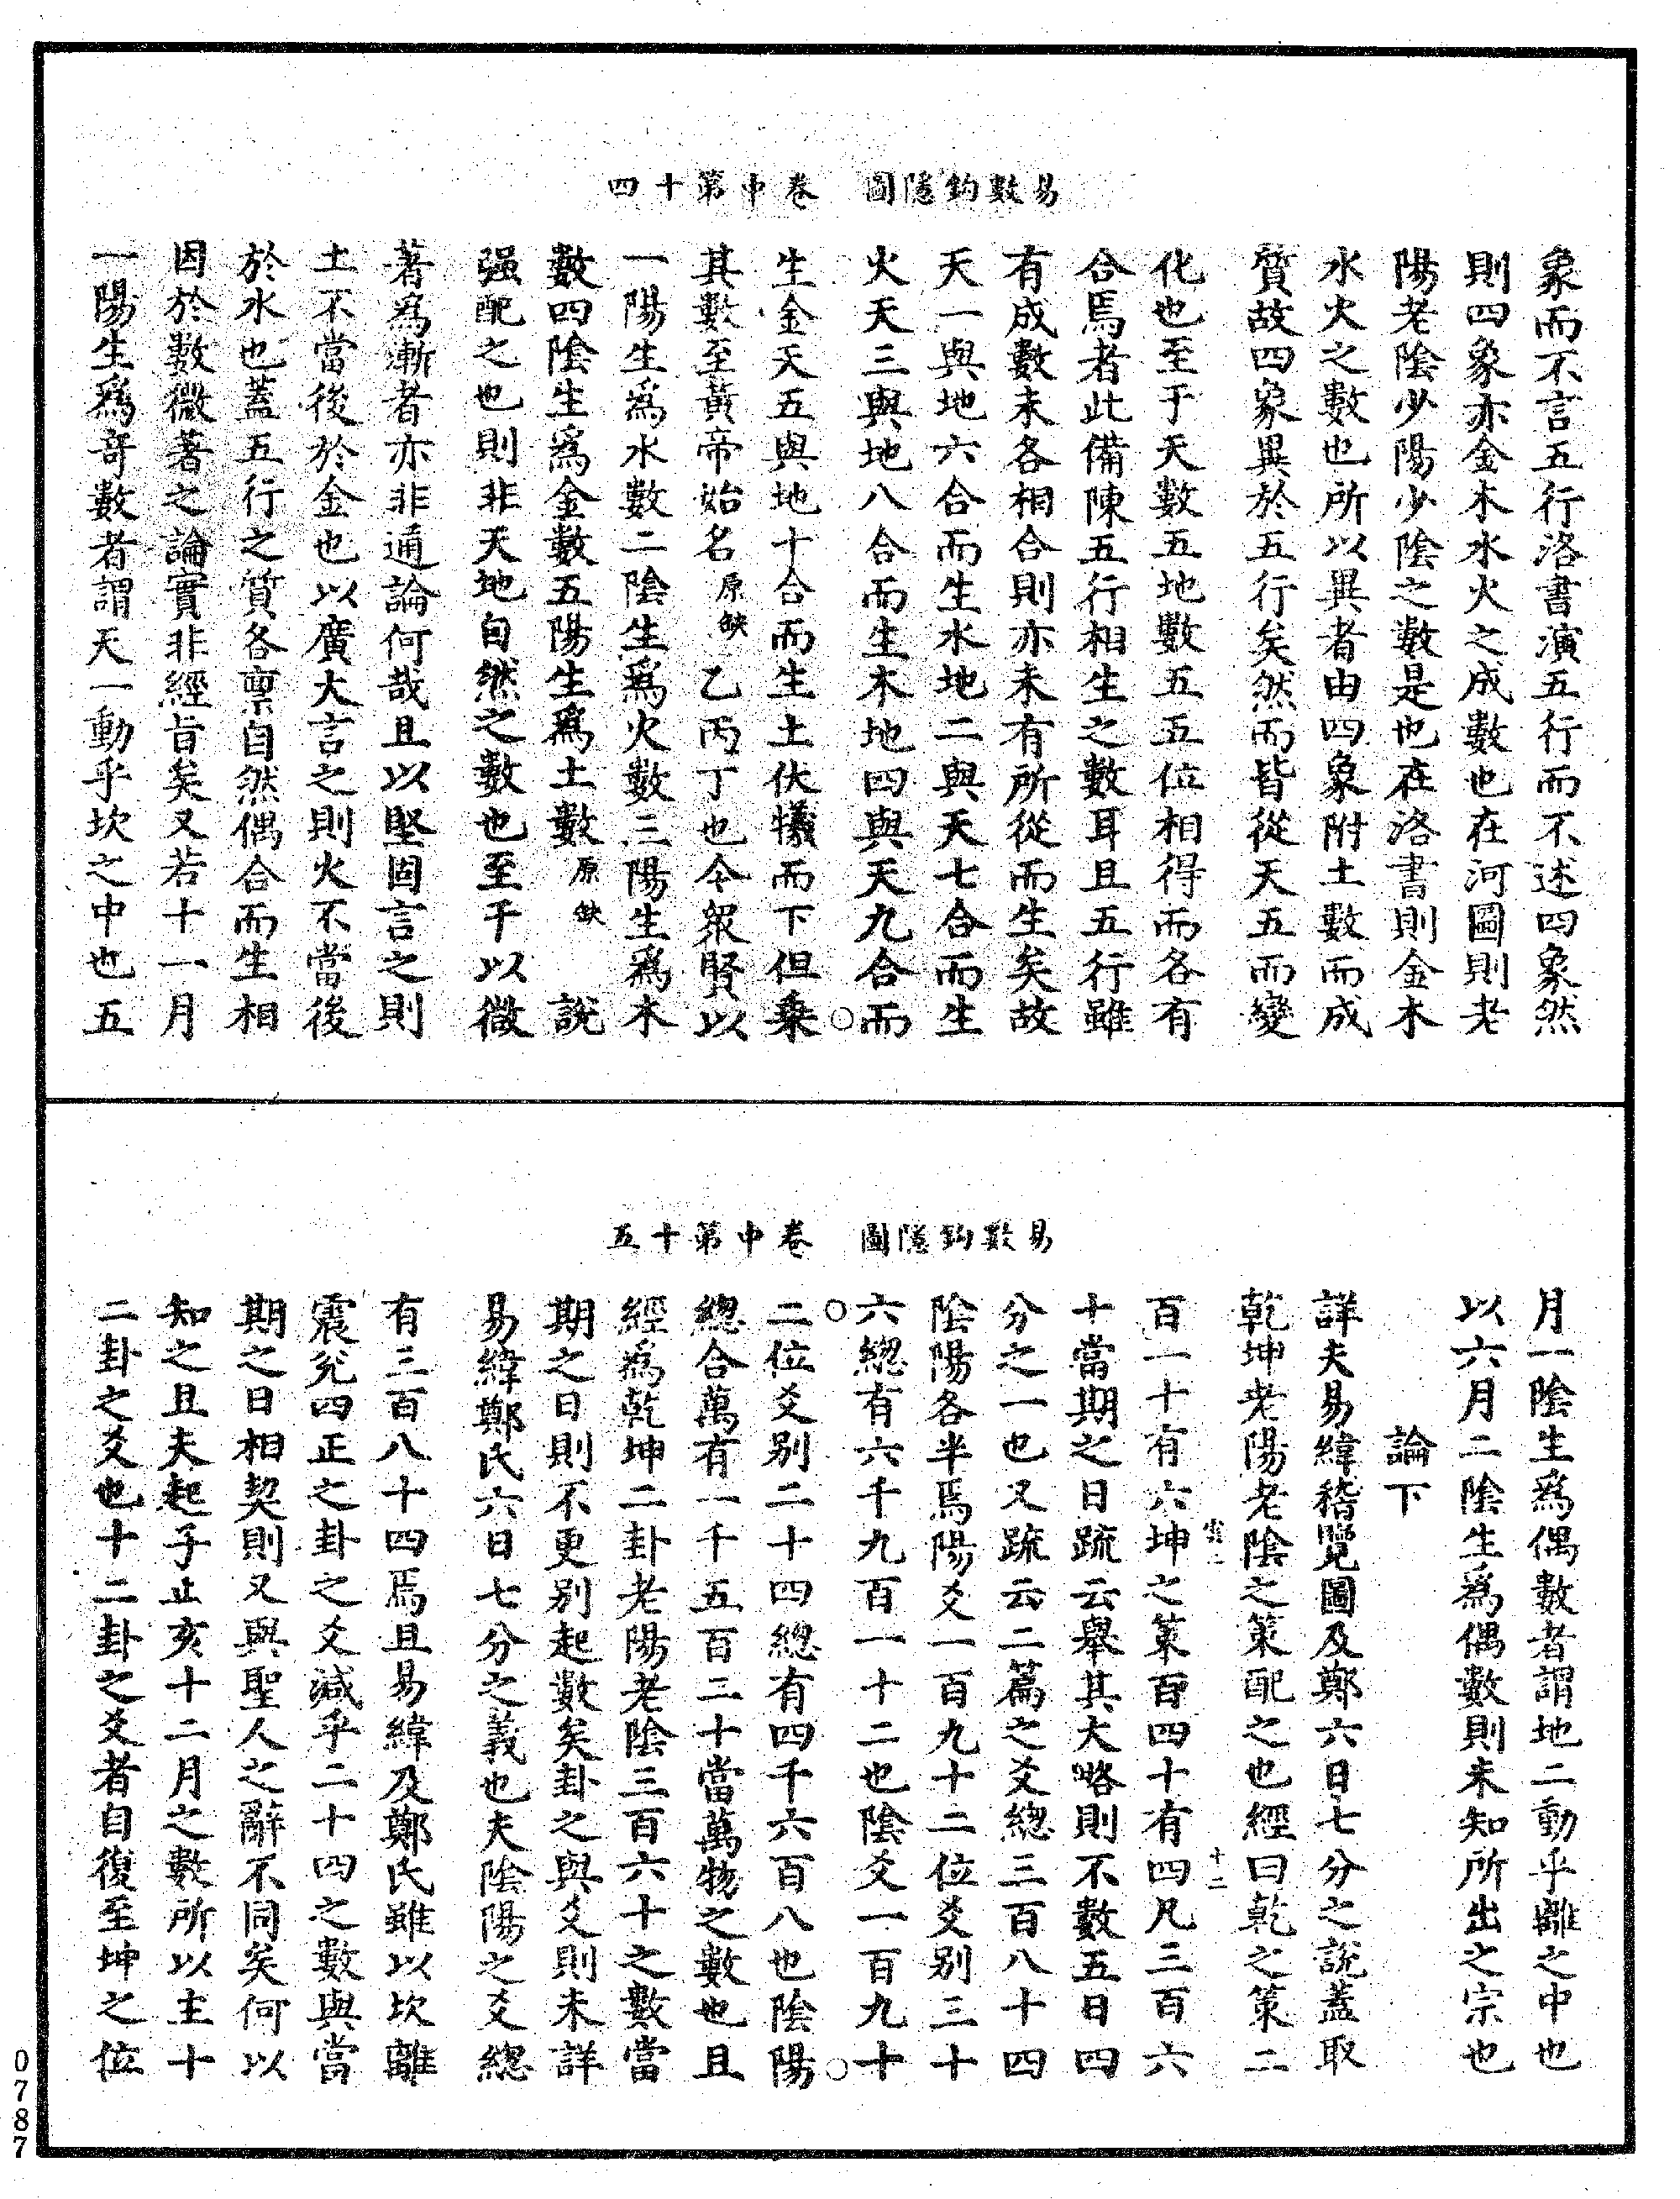 易數鈎隱圖　卷中第十四
象而不言五行洛書演五行而不述四象然
則四象亦金木水火之成數也在河圖則老
陽老陰少陽少陰之數是也在洛書則金木
水火之數也所以異者由四象附土數而成
質故四象異於五行矣然而皆從天五而變
化也至于天數五地數五五位相得而各有
合焉者此備陳五行相生之數耳且五行雖
有成數未各相合則亦未有所從而生矣故
天一與地六合而生水地二與天七合而生
火天三與地八合而生木地四與天九合而
生金天五與地十合而生土伏犧而下但乗
其數至黃帝始名原缺乙丙丁也今衆賢以
一陽生爲水數二陰生爲火數三陽生爲木
數四陰生爲金數五陽生爲土數原缺　說
强配之也則非天地自然之數也至于以微
著爲漸者亦非通論何哉且以堅固言之則
土不當後於金也以廣大言之則火不當後
於水也蓋五行之質各稟自然偶合而生相
因於數微著之論實非經旨矣又若十一月
一陽生爲竒數者謂天一動乎坎之中也五
易數鈎隱圖　卷中第十五
月一陰生爲偶數者謂地二動乎離之中也
以六月二陰生爲偶數則未知所出之宗也
論下
詳夫易緯稽覽圖及鄭六日七分之說蓋取
乾坤老陽老陰之策配之也經曰乾之策二
雲二　十二
百一十有六坤之策百四十有四凡三百六
十當期之日疏云舉其大略則不數五日四
分之一也又疏云二篇之爻總三百八十四
陰陽各半焉陽爻一百九十二位爻别三十
六總有六千九百一十二也陰爻一百九十
二位爻别二十四總有四千六百八也陰陽
總合萬有一千五百二十當萬物之數也且
經爲乾坤二卦老陽老陰三百六十之數當
期之日則不更别起數矣卦之與爻則未詳
易緯鄭氏六日七分之義也夫陰陽之爻總
有三百八十四焉且易緯及鄭氏雖以坎離
震兌四正之卦之爻減乎二十四之數與當
期之日相契則又與聖人之辭不同矣何以
知之且夫起子止亥十二月之數所以主十
二卦之爻也十二卦之爻者自復至坤之位
0787